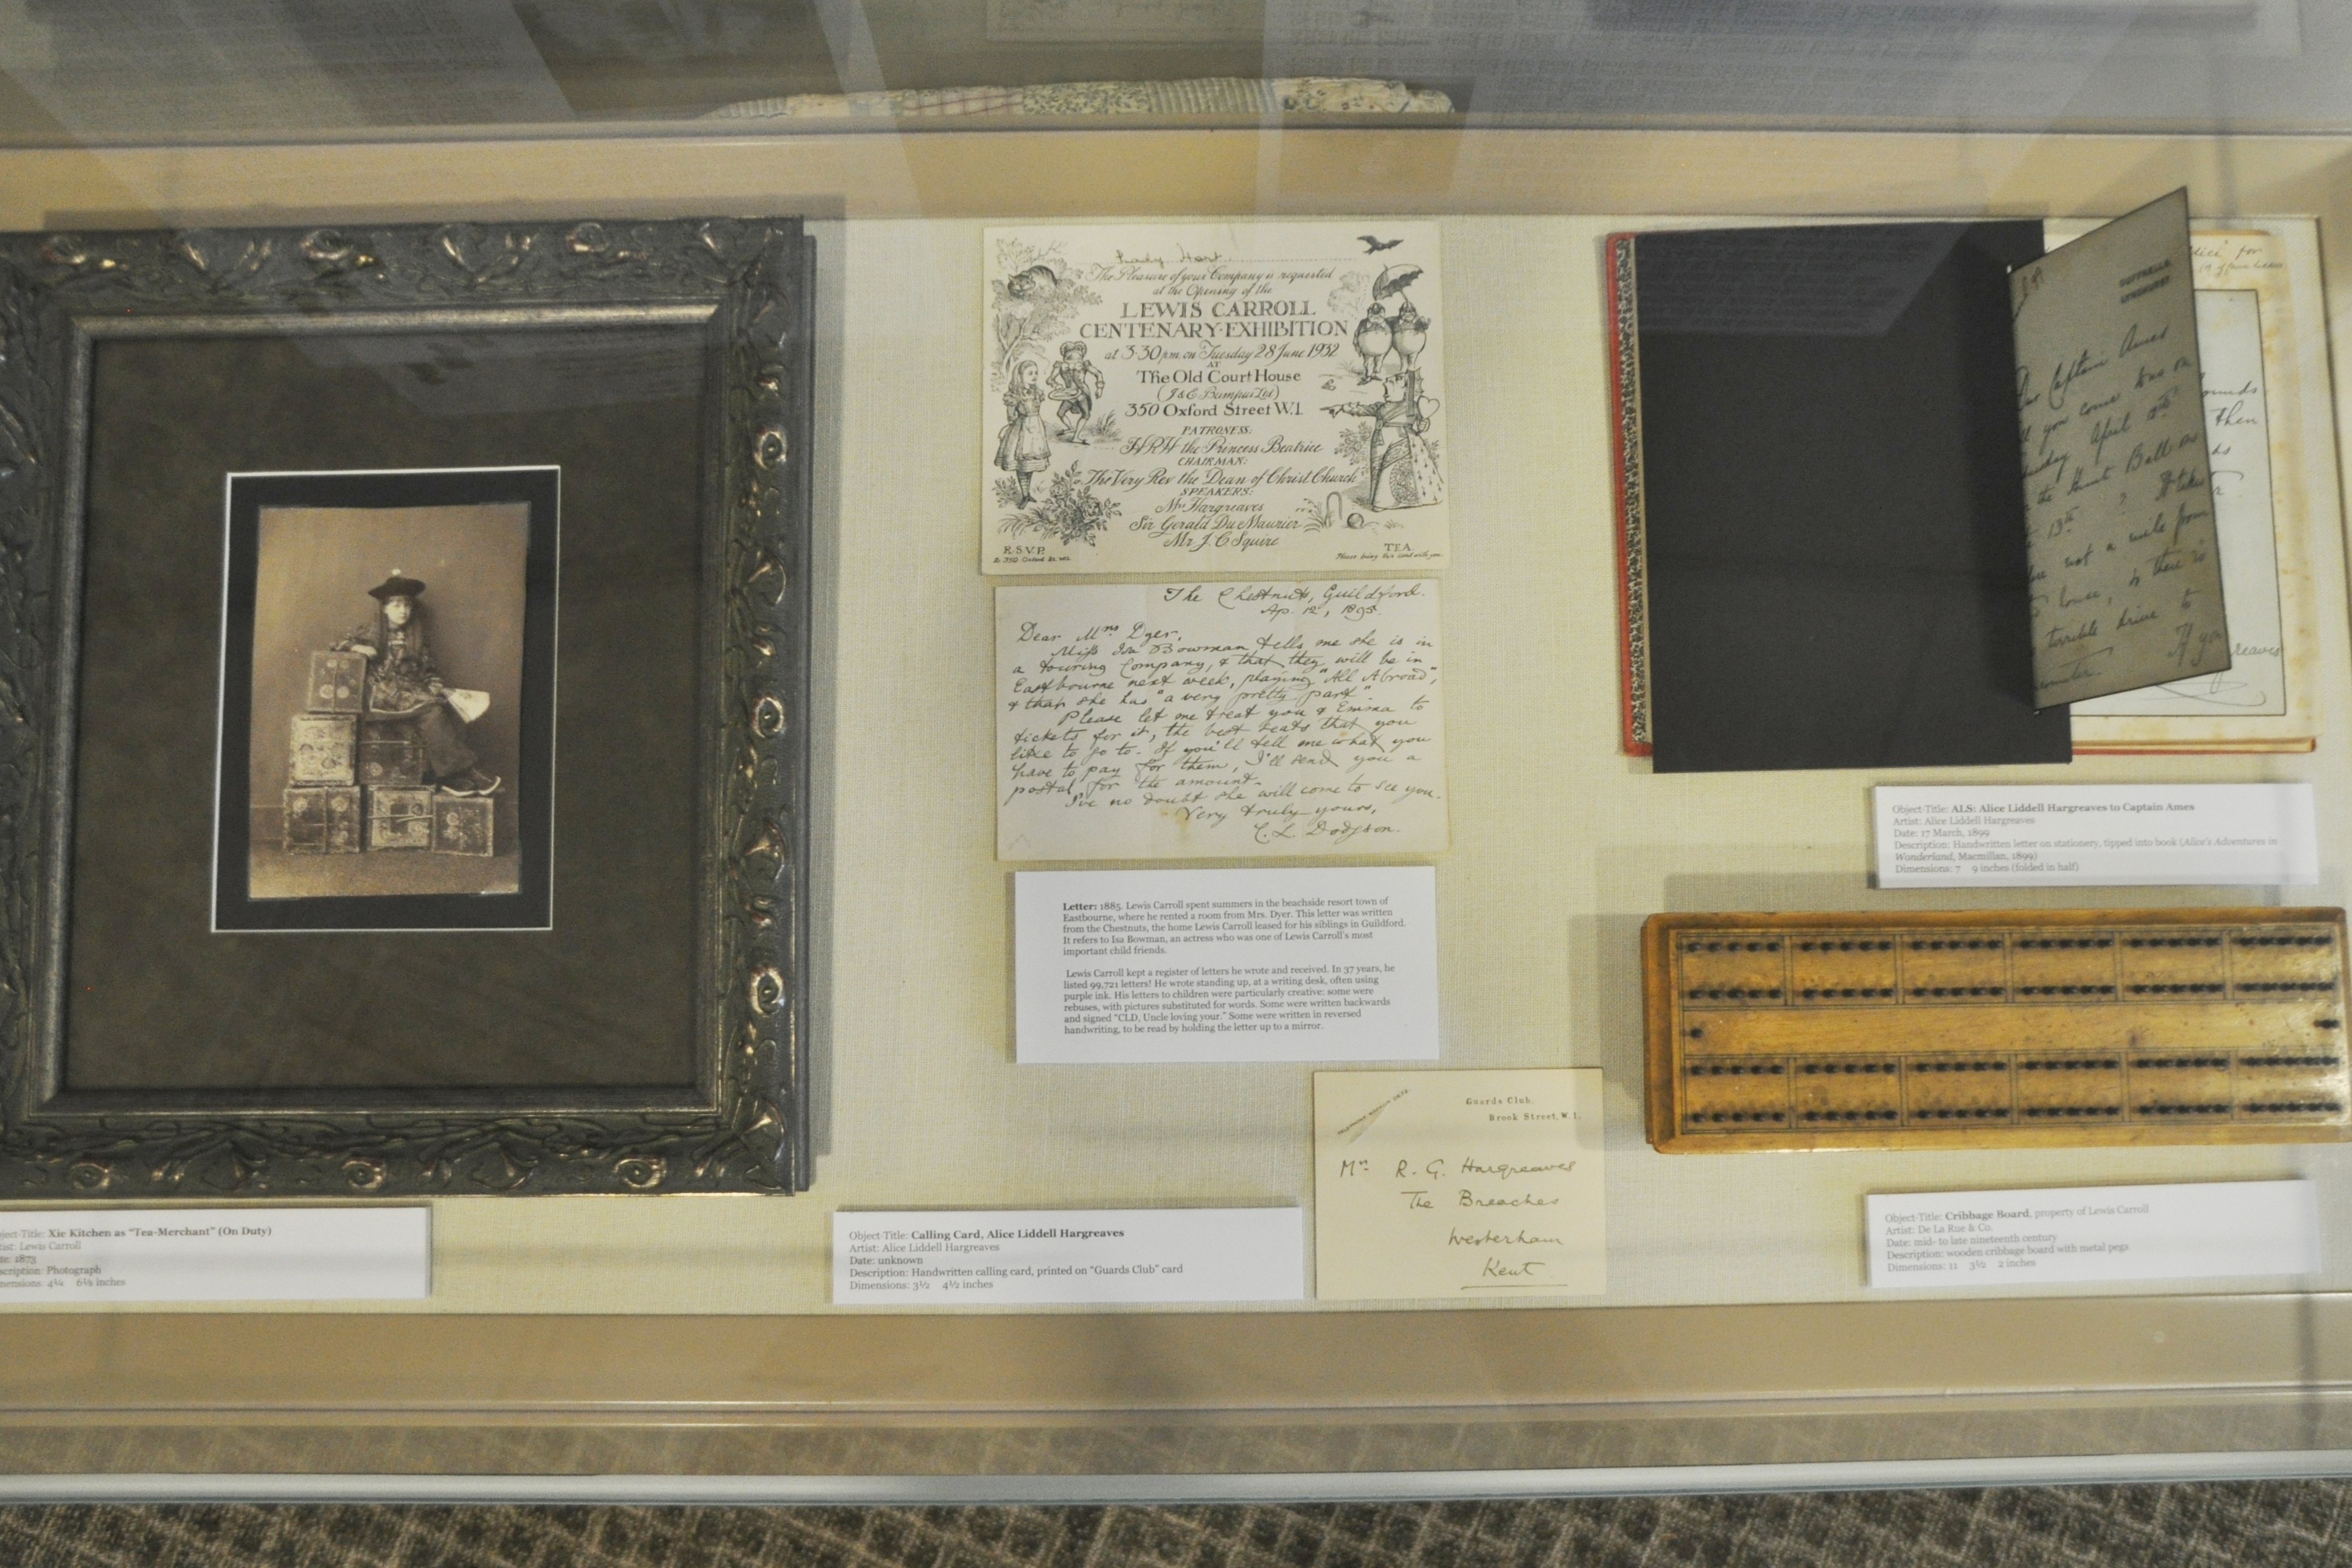 Lady Hart
The Pleasure of your Company is requested
at the Opening of the
LEWIS CARROLL
CENTENARY·EXHIBITION
at 3·30pm on Tuesday 28 June 1932
AT
The Old Court House
(J & E Bumpus Ltd)
350 Oxford Street W.1.
PATRONESS:
HRH the Princess Beatrice
CHAIRMAN:
The Very Rev the Dean of Christ Church
SPEAKERS:
Mrs Hargreaves
Sir Gerald Du Maurier
Mr J. C Squire
R.S.V.P.
To 350 Oxford St. W.1.
TEA
Please bring this card with you.
The Chestnuts, Guildford.
Ap. 12, 1895.
Dear Mrs Dyer,
Miss Isa Bowman tells me she is in
a touring Company, & that they will be in
Eastbourne next week, playing "All Abroad",
& that she has "a very pretty part".
Please let me treat you & Emma to
tickets for it, the best seats that you
like to go to. If you'll tell me what you
have to pay for them, I'll send you a
postal for the amount.
I've no doubt she will come to see you.
Very truly yours,
C. L. Dodgson.
Letter: 1885. Lewis Carroll spent summers in the beachside resort town of
Eastbourne, where he rented a room from Mrs. Dyer. This letter was written
from the Chestnuts, the home Lewis Carroll leased for his siblings in Guildford.
It refers to Isa Bowman, an actress who was one of Lewis Carroll's most
important child friends.
Lewis Carroll kept a register of letters he wrote and received. In 37 years, he
listed 99,721 letters! He wrote standing up, at a writing desk, often using
purple ink. His letters to children were particularly creative: some were
rebuses, with pictures substituted for words. Some were written backwards
and signed "CLD, Uncle loving your." Some were written in reversed
handwriting, to be read by holding the letter up to a mirror.
Captain Ames
you come here on
April 12th
the Hunt Ball on
13th ? It takes
not a mile from
house, is there is
terrible drive to
If you
for
then
reaves
Object-Title: ALS: Alice Liddell Hargreaves to Captain Ames
Artist: Alice Liddell Hargreaves
Date: 17 March, 1899
Description: Handwritten letter on stationery, tipped into book (Alice's Adventures in
Wonderland, Macmillan, 1899)
Dimensions: 7 9 inches (folded in half)
Guards Club.
Brook Street, W.1.
Mrs R. G. Hargreaves
The Breaches
Westerham
Kent
ject-Title: Xie Kitchen as "Tea-Merchant" (On Duty)
tist: Lewis Carroll
te: 1873
scription: Photograph
mensions: 4¼ 6⅛ inches
Object-Title: Calling Card, Alice Liddell Hargreaves
Artist: Alice Liddell Hargreaves
Date: unknown
Description: Handwritten calling card, printed on "Guards Club" card
Dimensions: 3½ 4½ inches
Object-Title: Cribbage Board, property of Lewis Carroll
Artist: De La Rue & Co.
Date: mid- to late nineteenth century
Description: wooden cribbage board with metal pegs
Dimensions: 11 3½ 2 inches